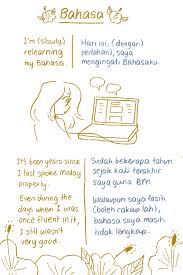 Bahasa
I'm (slowly)
relearning
my Bahasa.
Hari ini, (dengan
perlahan), saya
mengingati Bahasaku.
It's been years since
I last spoke Malay
properly.
Sudah beberapa tahun
sejak kali terakhir
saya guna BM.
Even during the
days when I was
once fluent in it,
I still wasn't
very good.
Walaupun saya fasih
(boleh cakap lah),
bahasa saya masih
tidak lengkap.